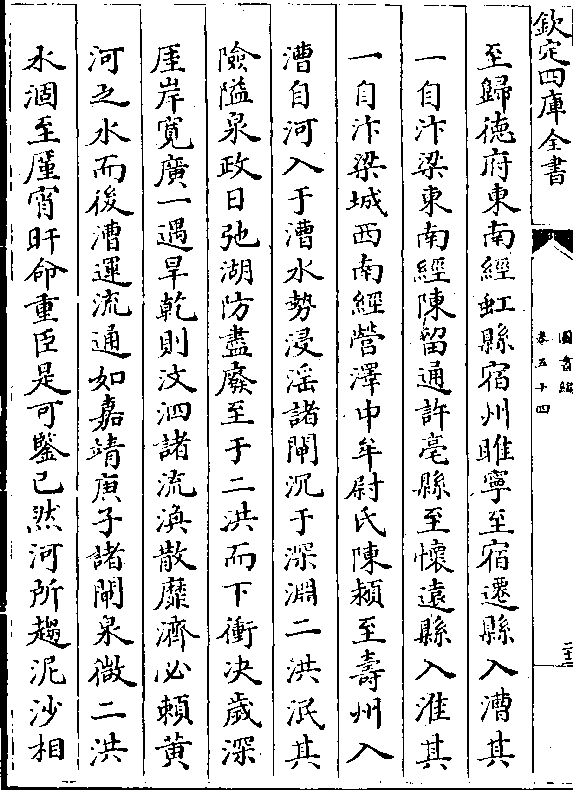 欽定四庫全書
圖書編
卷五十四
至歸德府東南經虹縣宿州睢寧至宿遷縣入漕其
一自汴梁東南經陳留通許亳縣至懷遠縣入淮其
一自汴梁城西南經營澤中牟尉氏陳潁至壽州入
漕自河入于漕水勢浸滛諸閘沉于深淵二洪泯其
險隘泉政日弛湖防盡廢至于二洪而下衝决歳深
厓岸寛廣一遇旱乾則汶泗諸流渙散靡濟必頼黄
河之水而後漕運流通如嘉靖庚子諸閘泉微二洪
水涸至厪宵旰命重臣是可鑒已然河所趨泥沙相